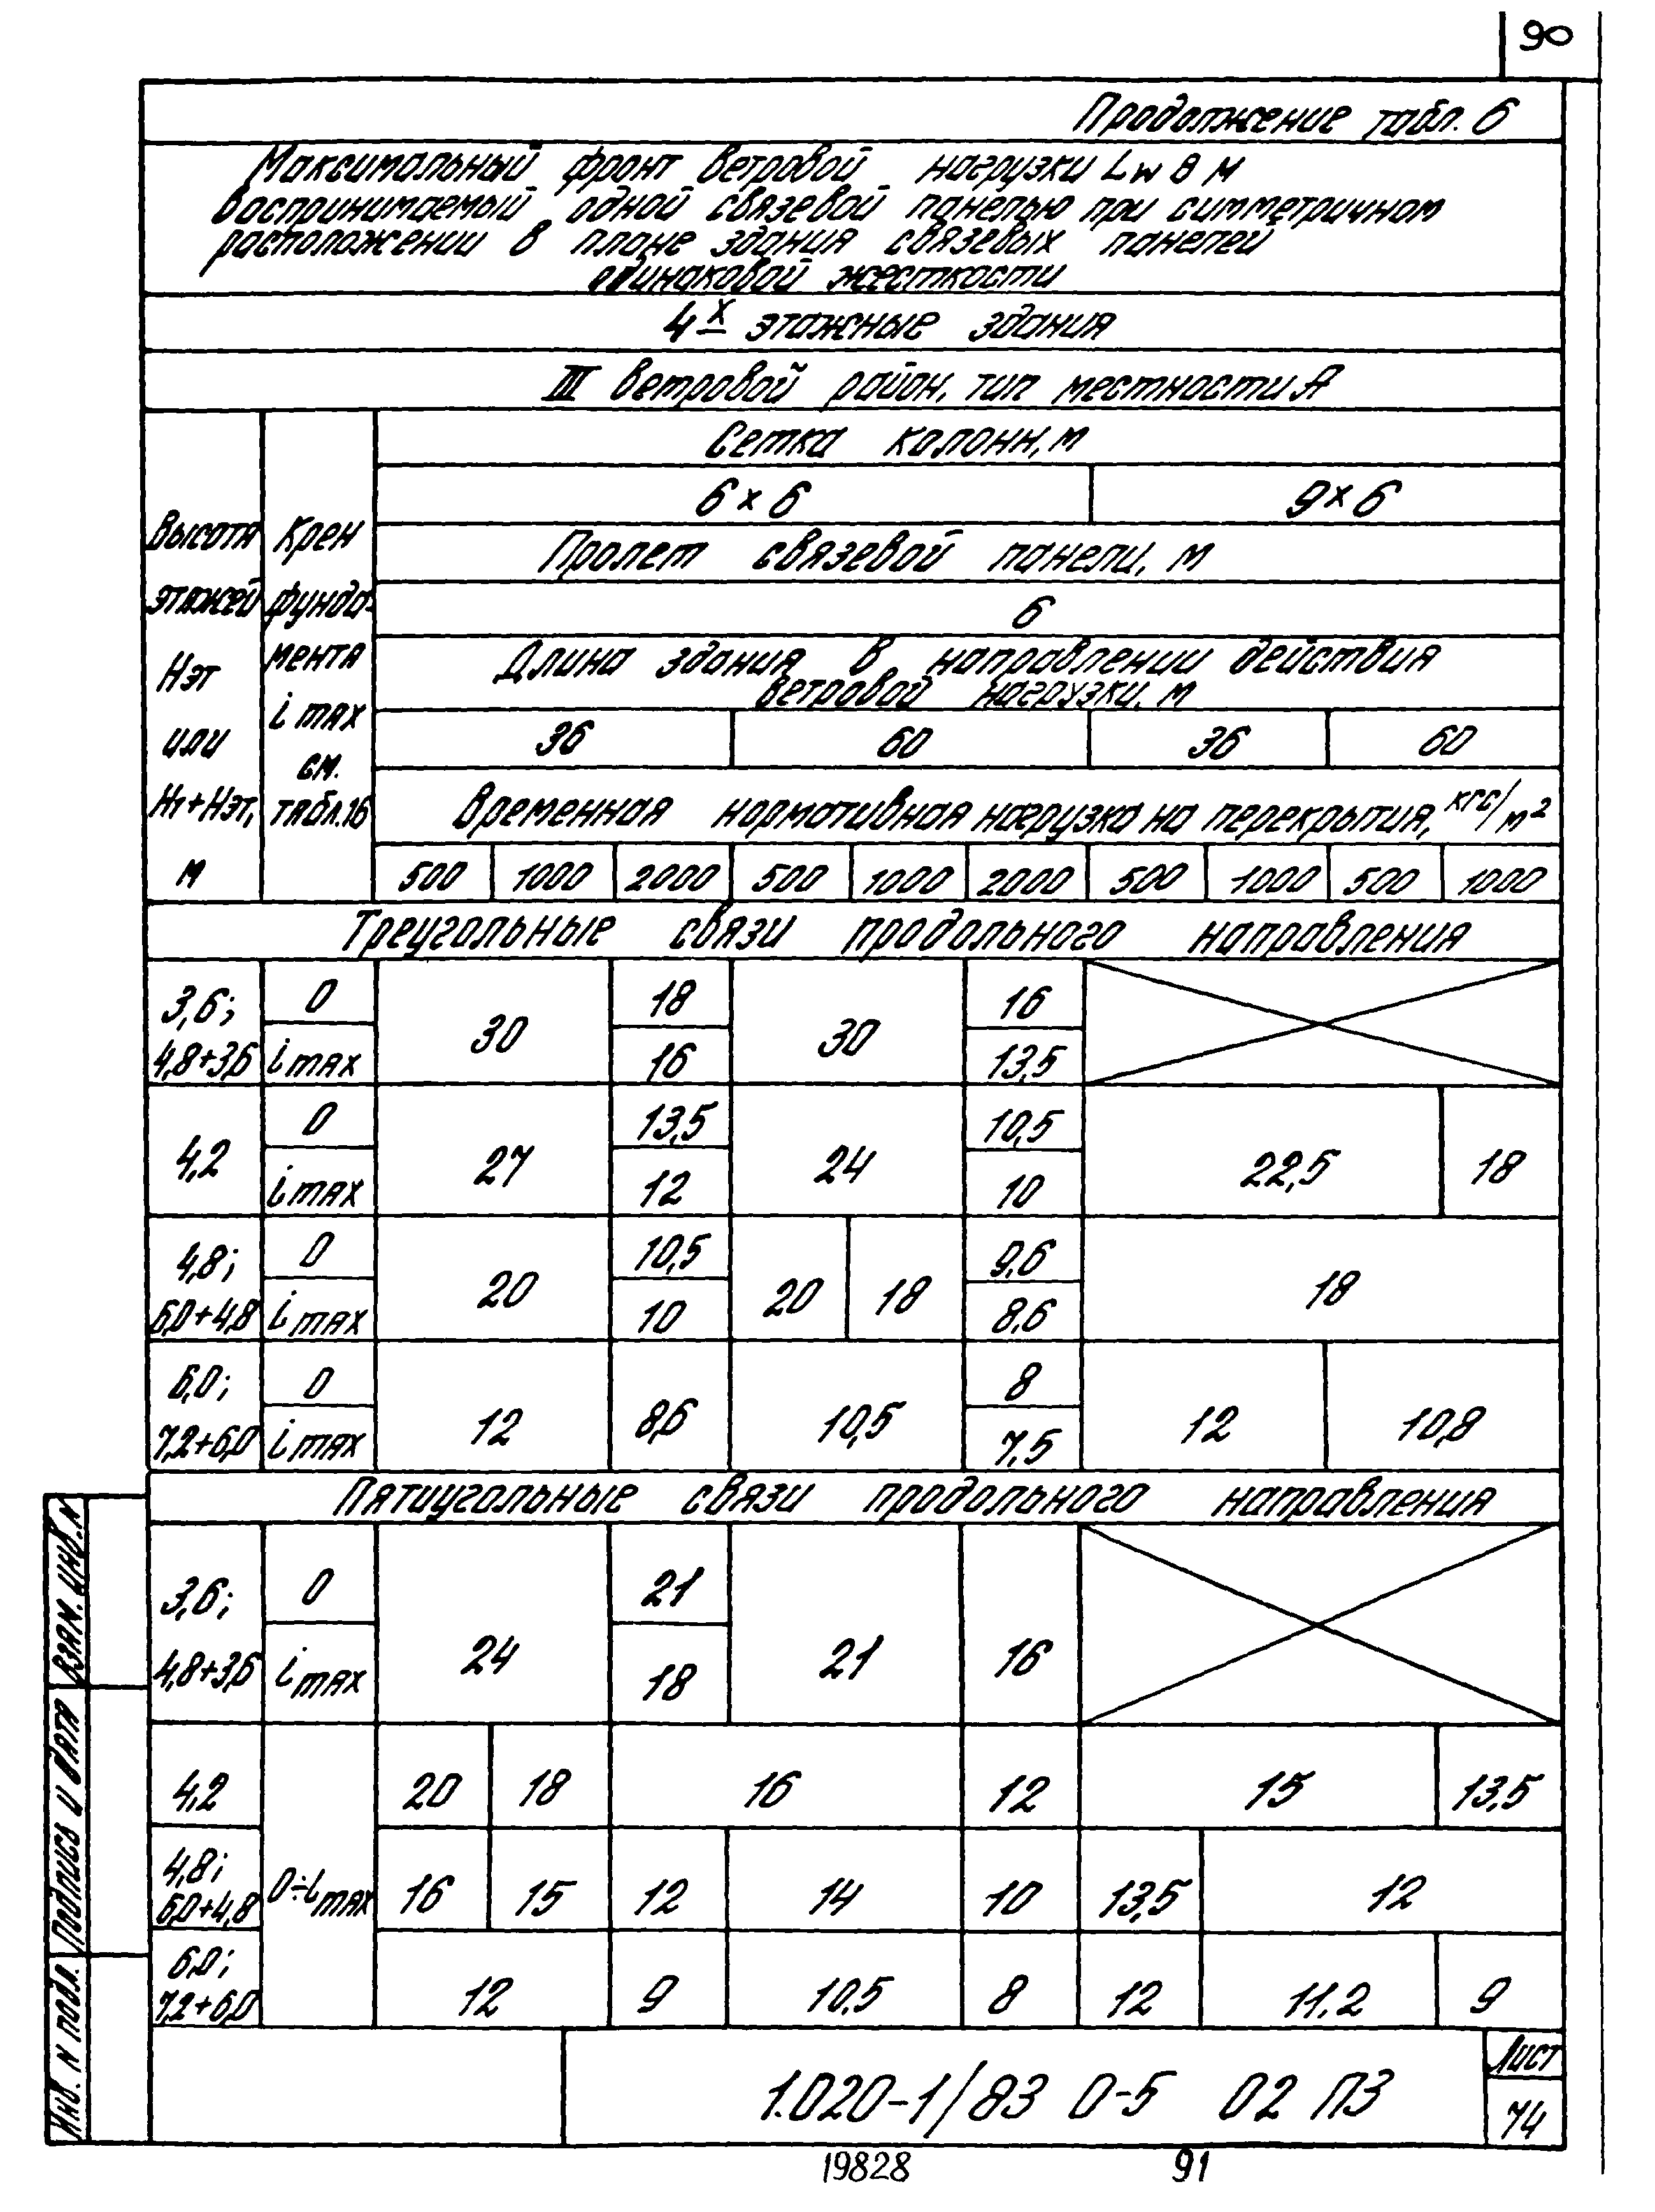 90
Продолжение табл. 6
Максимальный фронт ветровой нагрузки Lw в м
воспринимаемый одной связевой панелью при симметричном
расположении в плане здания связевых панелей
одинаковой жесткости
4х этажные здания
III ветровой район, тип местности А
Высота этажей Нэт или Н1+Нэт, м
Крен фундамента i max см. табл.16
Сетка колонн, м
6×6 9×6
Пролет связевой панели, м
6
Длина здания в направлении действия
ветровой нагрузки, м
36 60 36 60
Временная нормативная нагрузка на перекрытия, кгс/м2
500 1000 2000 500 1000 2000 500 1000 500 1000
Треугольные связи продольного направления
3,6; 0 18 16
30 30
4,8+3,6 i max 16 13,5
0 13,5 10,5
4,2 27 24 22,5 18
i max 12 10
4,8; 0 10,5 9,6
20 20 18 18
6,0+4,8 i max 10 8,6
6,0; 0 8
12 8,6 10,5 12 10,8
7,2+6,0 i max 7,5
Пятиугольные связи продольного направления
3,6; 0 21
24 21 16
4,8+3,6 i max 18
4,2 20 18 16 12 15 13,5
4,8;
6,0+4,8 0÷i max 16 15 12 14 10 13,5 12
6,0;
7,2+6,0 12 9 10,5 8 12 11,2 9
Взам. инв. N
Подпись и дата
Инв. N подл.
1.020-1/83 0-5 02 ПЗ
Лист
74
19828 91